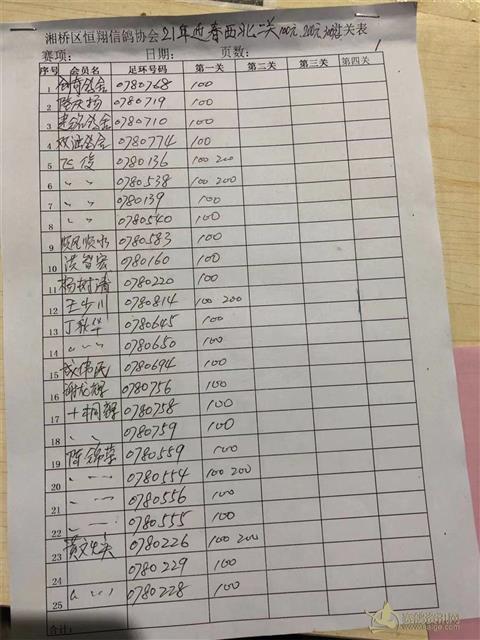 湘桥区恒翔信鸽协会21年迎春西北一关100元 200元 关表
赛项： 日期： 页数：
序号 会员名 足环号码 第一关 第二关 第三关 第四关
1 鸽舍 0780768 100
2 陈庆扬 0780719 100
3 鸽舍 0780710 100
4 鸽舍 0780774 100
5 飞俊 0780136 100 200
6 〃 〃 0780538 100 200
7 〃 〃 0780139 100
8 〃 〃 0780540 100
9 顺风顺水 0780583 100
10 洪智宏 0780160 100
11 杨树清 0780220 100
12 王少川 0780814 100 200
13 丁秋华 0780645 100
14 〃 〃 〃 0780650 100
15 伟民 0780694 100
16 谢龙辉 0780756 100
17 十桐辉 0780758 100
18 〃 〃 0780759 100
19 陈锦荣 0780559 100
20 〃 一 0780554 100 200
21 〃 一 0780556 100
22 〃 一 0780555 100
23 黄文 0780226 100 200
24 0780229 100
25 〃 〃 〃 0780228 100
合计：